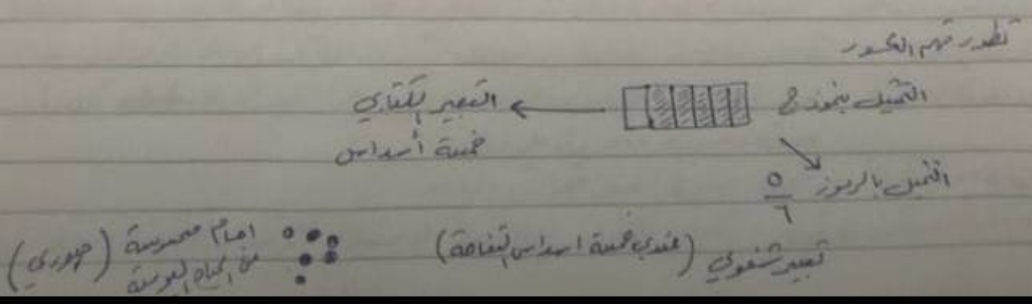 تطور فهم الكسور
التمثيل بنموذج
التعبير الكتابي
خمسة أسداس
التمثيل بالرموز ٥/٦
تعبير شفوي (عندي خمسة اسداس التفاحة)
اجسام محسوسة (صوري)
من الحياة اليومية